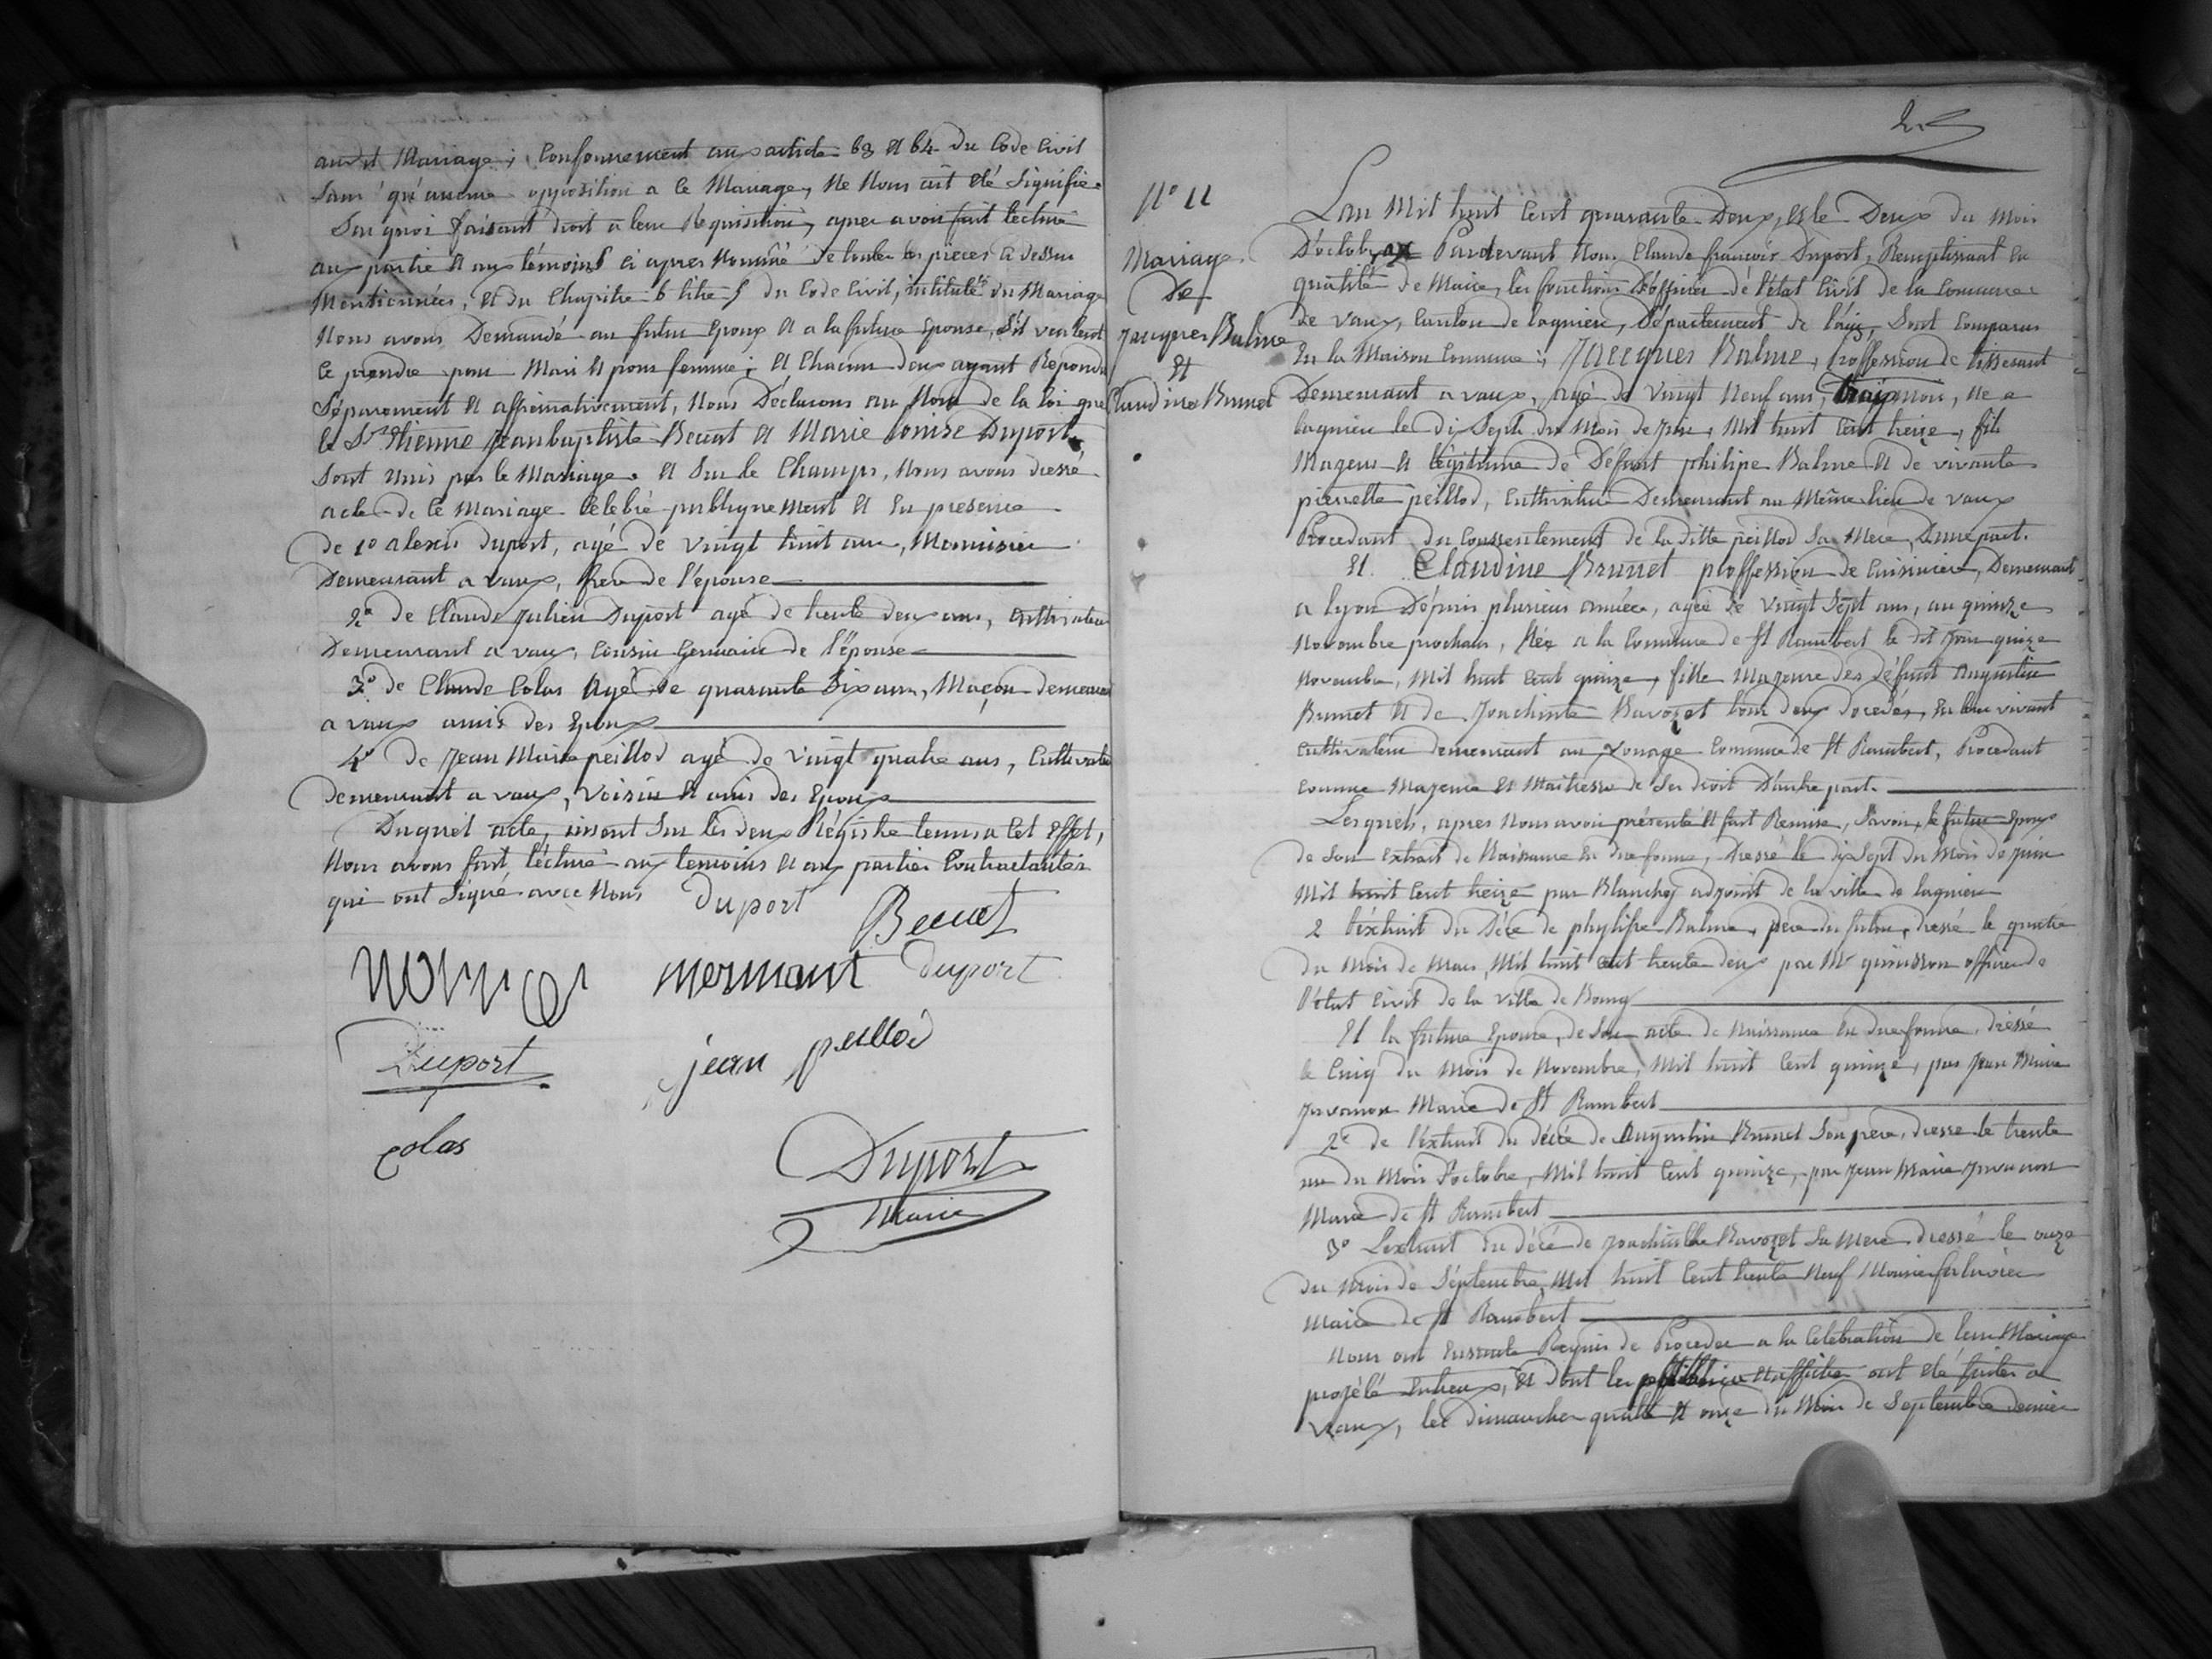 audit Mariage; Conformement aux article 63 et 64 du Code Civil
Sans qu'aucune opposition a ce Mariage, ne Nous ait été Signifiée
Sur quoi faisant droit a leur Requisition, apres avoir fait lecture
aux partie et aux témoins ci apres Nommé de toutes les pieces ci dessus
Mentionnées, et du Chapitre 6 titre 5 du Code Civil, intitulé du Mariage
Nous avons Demandé au futur Epoux et a la future Epouse, S'il veulent
Ce prendre pour Mari et pour femme; et Chacun deux ayant Repondu
Séparement et affirmativement, Nous Déclarons au Nom de la loi que
le Sr Etienne Jeanbaptiste Becuat et Marie Louise Duport
Sont Unis par le Mariage. et Sur le Champs, Nous avons dressé
acte de ce Mariage Célébré publiquement et En presence
de 1o alexis duport, agé de vingt huit ans, Menuisier
Demeurant a vaux, frere de l'épouse
2e de Claude Julien Duport agé de trente deux ans, Cultivateur
Demeurant a vaux, Cousin Germain de l'épouse
3o de Claude Colas Agé de quarante Six ans, Maçon demeurant
a vaux amis des Epoux
4e de Jean Marie peillod agé de vingt quatre ans, Cultivateur
demeurant a vaux, voisin et amis des Epoux
Duquel acte, inscrit Sur les deux Régistre tenus a Cet Effet,
Nous avons fait lécture aux temoins et aux parties Contractantes
qui ont Signé avec Nous duport
Becuat
mermant duport
Duport jean peillod
Colas
Duport
Maire
2.
No 11
Mariage
De
Jacques Balme
Et
Claudine Brunet
Lan Mil huit Cent quarante Deux, et le Deux du Mois
D'octobre Pardevant Nous Claude françois Duport, Remplissant En
qualité de Maire, les fonctions D'officier de l'état Civil de la Commune
de vaux, Canton de lagnieu, Département de l'ain, Sont Comparus
En la Maison Commune; Jacques Balme, proffession de tisserant
Demeurant a vaux, agé de vingt Neuf ans, trois mois, Né a
lagnieu le dix Sept du Mois de Juin, Mil huit Cent treize, fils
Mageur et légitime de Défunt philipe Balme et de vivante
pierrette peillod, Cultivatrice Demeurant au Même lieu de vaux
Procedant du Conssentement de la ditte peillod Sa Mere, Dunepart.
Et Claudine Brunet proffession de Cuisiniere, Demeurant
a lyon Dépuis plusieurs années, agée de vingt Sept ans, au quinze
Novembre prochain, Née a la Commune de St Rambert le dit Jour quinze
Novembre, Mil huit Cent quinze, fille Mageure des défunt Augustin
Brunet et de Joachinte Bavozet tous deux décédés, En leur vivant
Cultivateur demeurant au Commune de St Rambert, Procedant
Comme Mageure et Maitresse de Ses droit D'autre part.
Lesquels, apres Nous avoir présenté et fait Remise, Savoir, le futur Epoux
de Son Extrait de Naissance En due forme, Dressé le dix Sept du Mois de Juin
Mil huit Cent treize par adjoint de la ville de lagnieu
2 l'éxtrait du Décé de Balme, pere du futur, dressé le quatre
du Mois de Mars, Mil huit Cent trente deux par Mr officier de
l'état Civil de la Ville de Bourg
Et la future Epouse, de Son acte de Naissance En due forme, dressé
le Cinq du Mois de Novembre, Mil huit Cent quinze, par Jean Marie
Juvanon Maire de St Rambert
2e de l'éxtrait du décé de Augustin Brunet Son pere, dressé le trente
un du Mois d'octobre, Mil huit Cent quinze, par Jean Marie Juvanon
Maire de St Rambert
3o L'extrait du décé de Bavozet Sa Mere dressé le onze
du Mois de Séptembre, Mil huit Cent trente Neuf
Maire de St Rambert
Nous ont Ensuite Requis de Proceder a la Celebration de leur Mariage
projété Entreux, et dont les et affiches ont été faites a
vaux, les dimanches quatre et onze du Mois de Septembre dernier